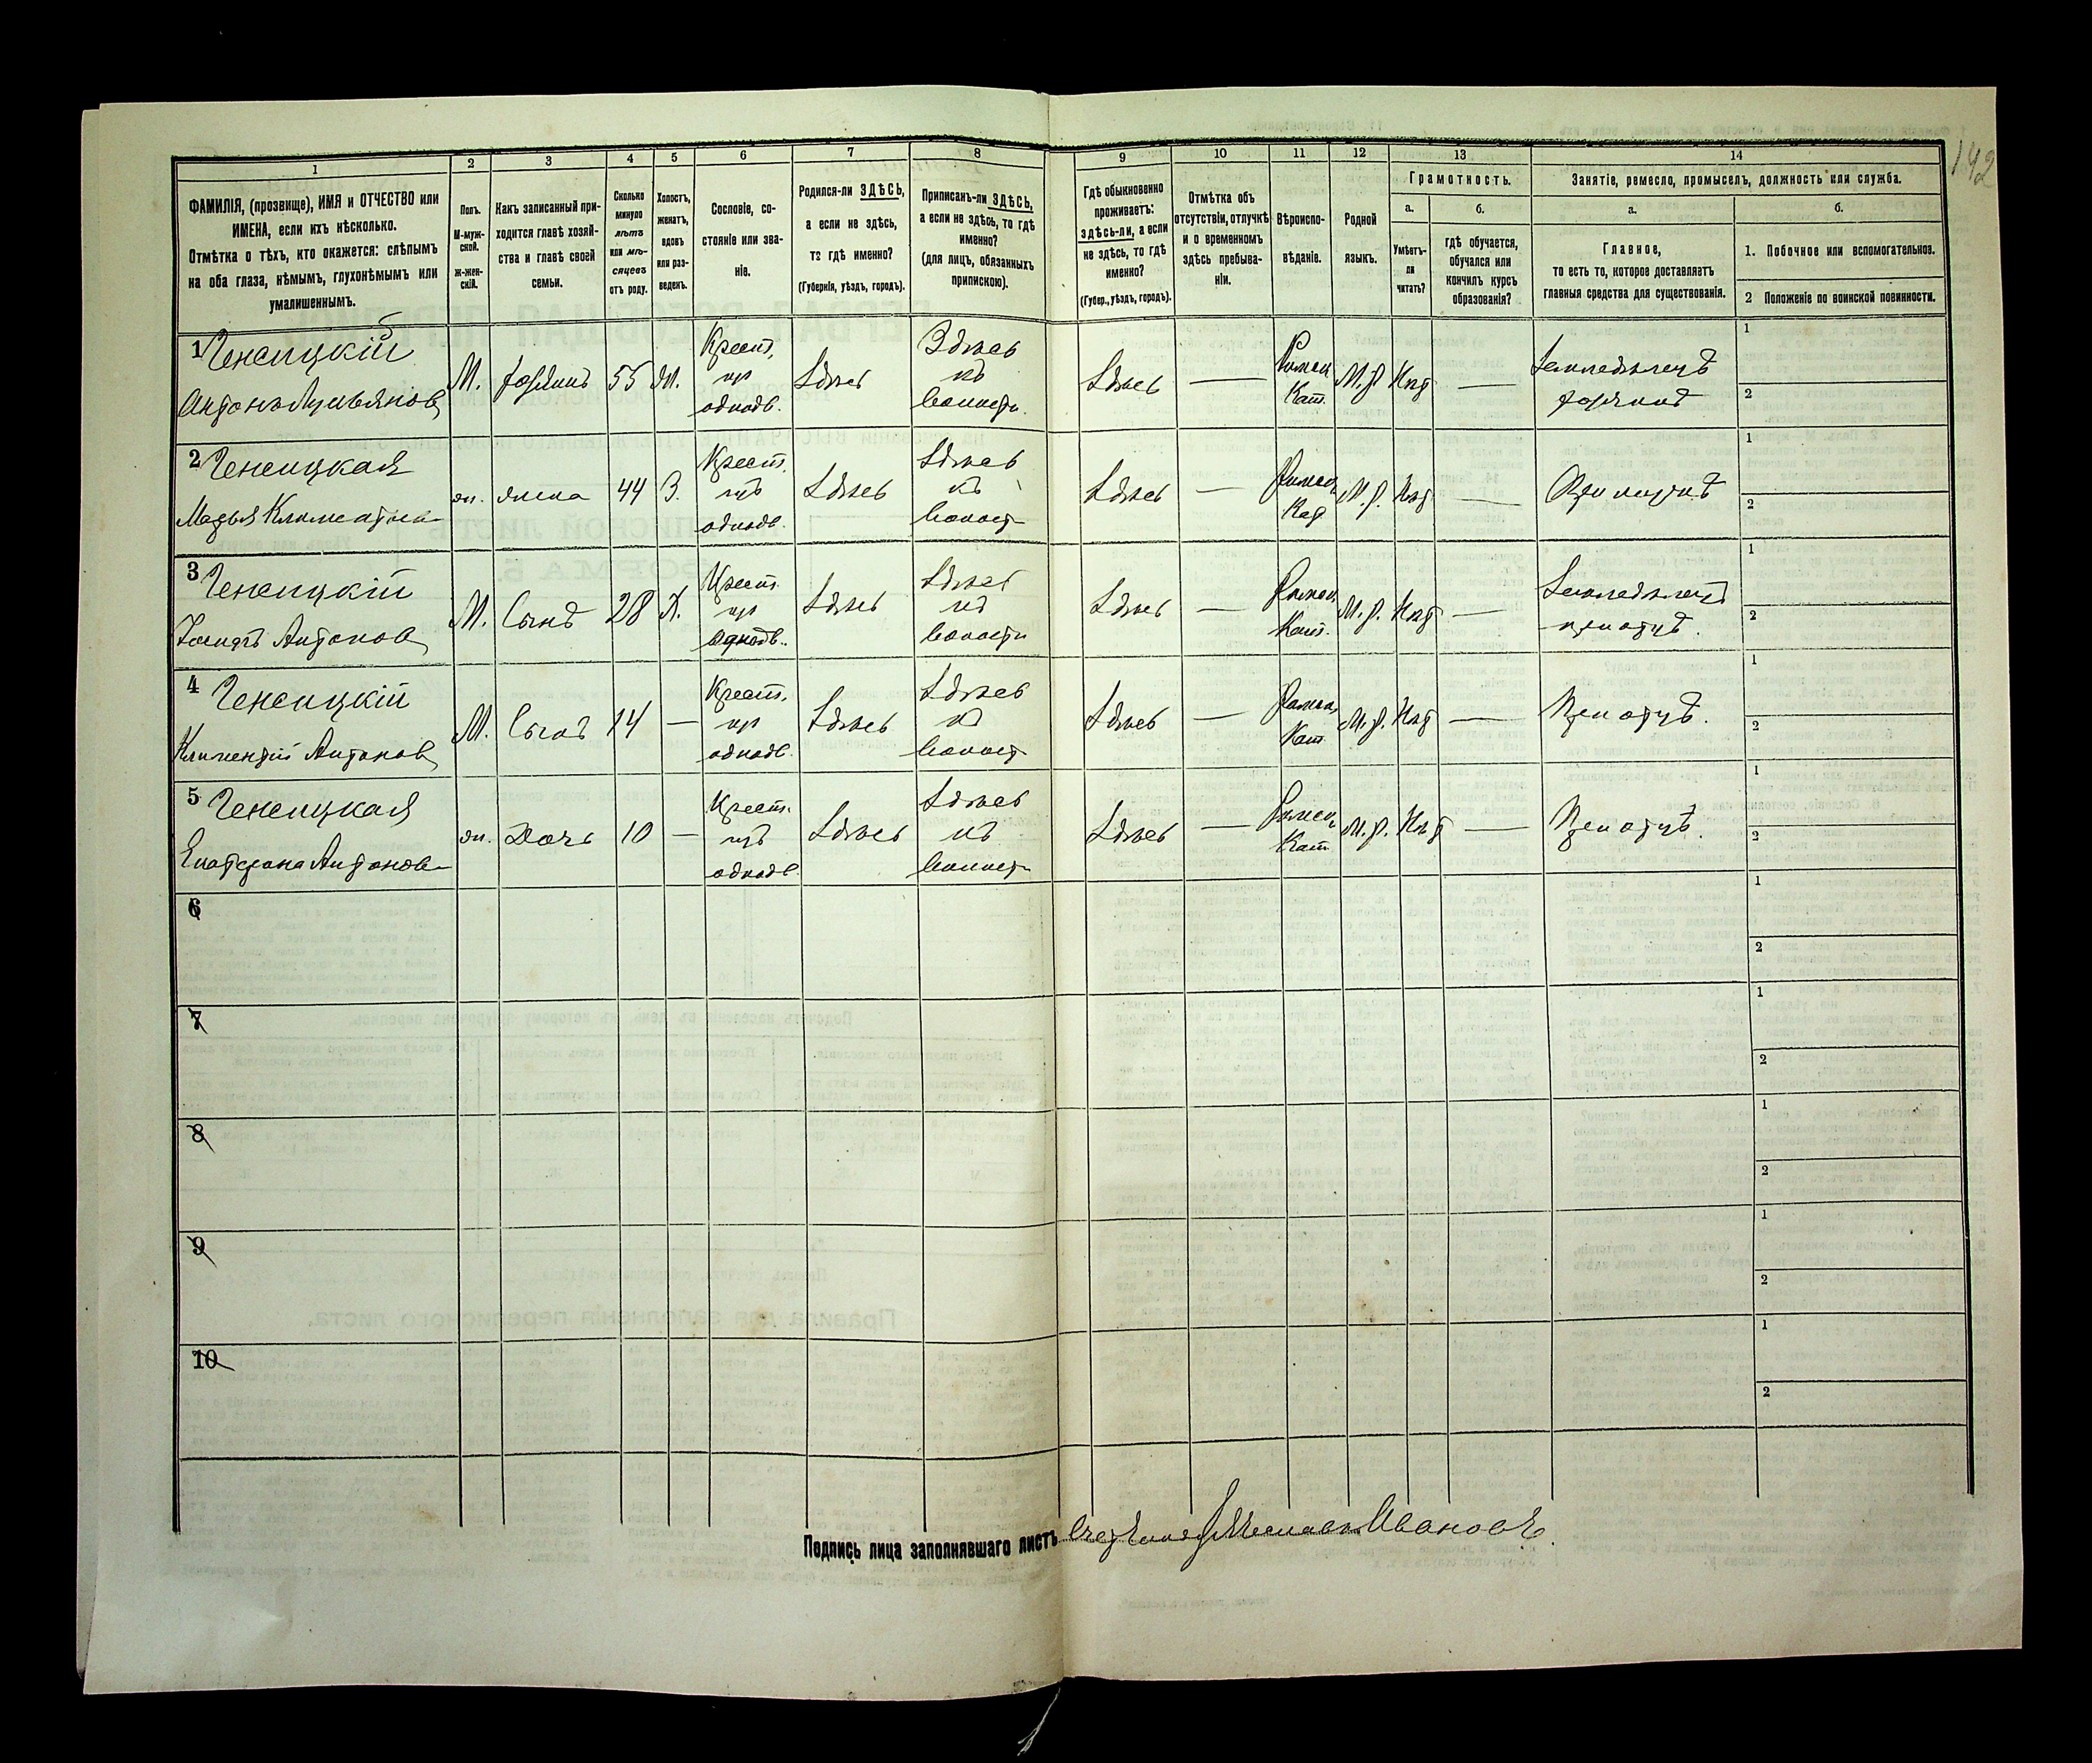 142
1 2 3 4 5 6 7 8 9 10 11 12 13 14
ФАМИЛІЯ, (прозвище), ИМЯ и ОТЧЕСТВО или
ИМЕНА, если ихъ нѣсколько.
Отмѣтка о тѣхъ, кто окажется: слѣпымъ
на оба глаза, нѣмымъ, глухонѣмымъ или
умалишеннымъ.
Полъ.
М-муж-
ской.
Ж-жен-
скій.
Какъ записанный при-
ходится главѣ хозяй-
ства и главѣ своей
семьи.
Сколько
минуло
лѣтъ
или мѣ-
сяцевъ
отъ роду.
Холостъ,
женатъ,
вдовъ
или раз-
веденъ.
Сословіе, со-
стояніе или зва-
ніе.
Родился-ли ЗДѢСЬ,
а если не здѣсь,
то гдѣ именно?
(Губернія, уѣздъ, городъ).
Приписанъ-ли ЗДѢСЬ,
а если не здѣсь, то гдѣ
именно?
(для лицъ, обязанныхъ
припискою).
Гдѣ обыкновенно
проживаетъ:
здѣсь-ли, а если
не здѣсь, то гдѣ
именно?
(Губер., уѣздъ, городъ).
Отмѣтка объ
отсутствіи, отлучкѣ
и о временномъ
здѣсь пребыва-
ніи.
Вѣроиспо-
вѣданіе.
Родной
языкъ.
Грамотность.
а.
Умѣетъ-
ли
читать?
б.
гдѣ обучается,
обучался или
кончилъ курсъ
образованія?
Занятіе, ремесло, промыселъ, должность или служба.
а.
Главное,
то есть то, которое доставляетъ
главныя средства для существованія.
б.
1. Побочное или вспомогательное.
2 Положеніе по воинской повинности.
1 Ченецкій
Антонъ
М. 55
Крест.
однодв.
Здѣсь
Здѣсь
волости.
Здѣсь
—
Римск.
Кат.
М. Нѣт —
Земледѣлецъ
1
2
2 Ченецкая
Марья
ж. жена 44 З.
Крест.
однодв.
Здѣсь
Здѣсь
волост
Здѣсь
—
Римск.
Кат
Нѣт —
1
2
3 Ченецкій
Антонов
М. Сынъ 28 Х.
Крест.
однодв.
Здѣсь
Здѣсь
волости
Здѣсь
—
Римск.
Кат.
Нѣт —
Земледѣлецъ
при отцѣ.
1
2
4 Ченецкій
Климентій Антонов
М. Сынъ 14 —
Крест.
однодв.
Здѣсь
Здѣсь
волост
Здѣсь
—
Римск.
Кат.
Нѣт —
При отцѣ.
1
2
5 Ченецкая
Екатерина Антонов
ж. Дочь 10 —
Крест.
однодв.
Здѣсь
Здѣсь
волост
Здѣсь
—
Римск.
Кат.
Нѣт —
При отцѣ.
1
2
6
1
2
7
1
2
8
1
2
9
1
2
10
1
2
Подпись лица заполнявшаго листъ Ивановъ